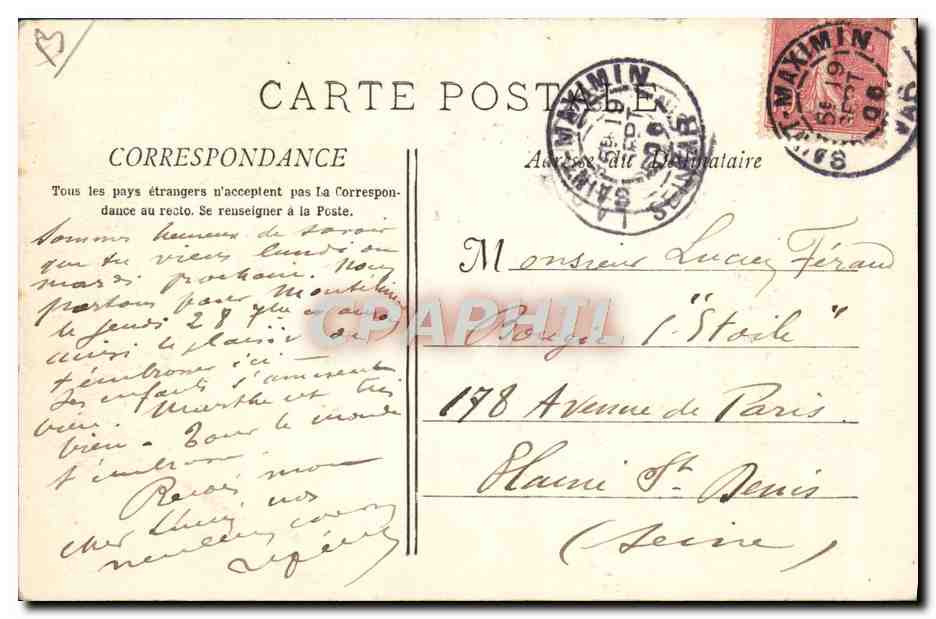 CARTE POSTALE
CORRESPONDANCE
Tous les pays étrangers n'acceptent pas la Correspon-
dance au recto. Se renseigner à la Poste.
Adresse du Destinataire
SAINT-MAXIMIN
5E 19
SEPT
06
VAR
SAINT-MAXIMIN
5E 19
SEPT
06
VAR
Sommes heureux de savoir
que tu viens lundi ou
mardi prochain. Nous
partons pour Montélimar
le jeudi 28
ainsi le plaisir de
t'embrasser ici
Les enfants s'amusent
bien. Marthe est très
bien. Tout le monde
t'embrasse.
Reçois, mon
cher Lucien, nos
meilleurs
Monsieur Lucien Féraud
Bougie "l'Etoile"
178 Avenue de Paris
Plaine St Denis
(Seine)
CPAPHIL